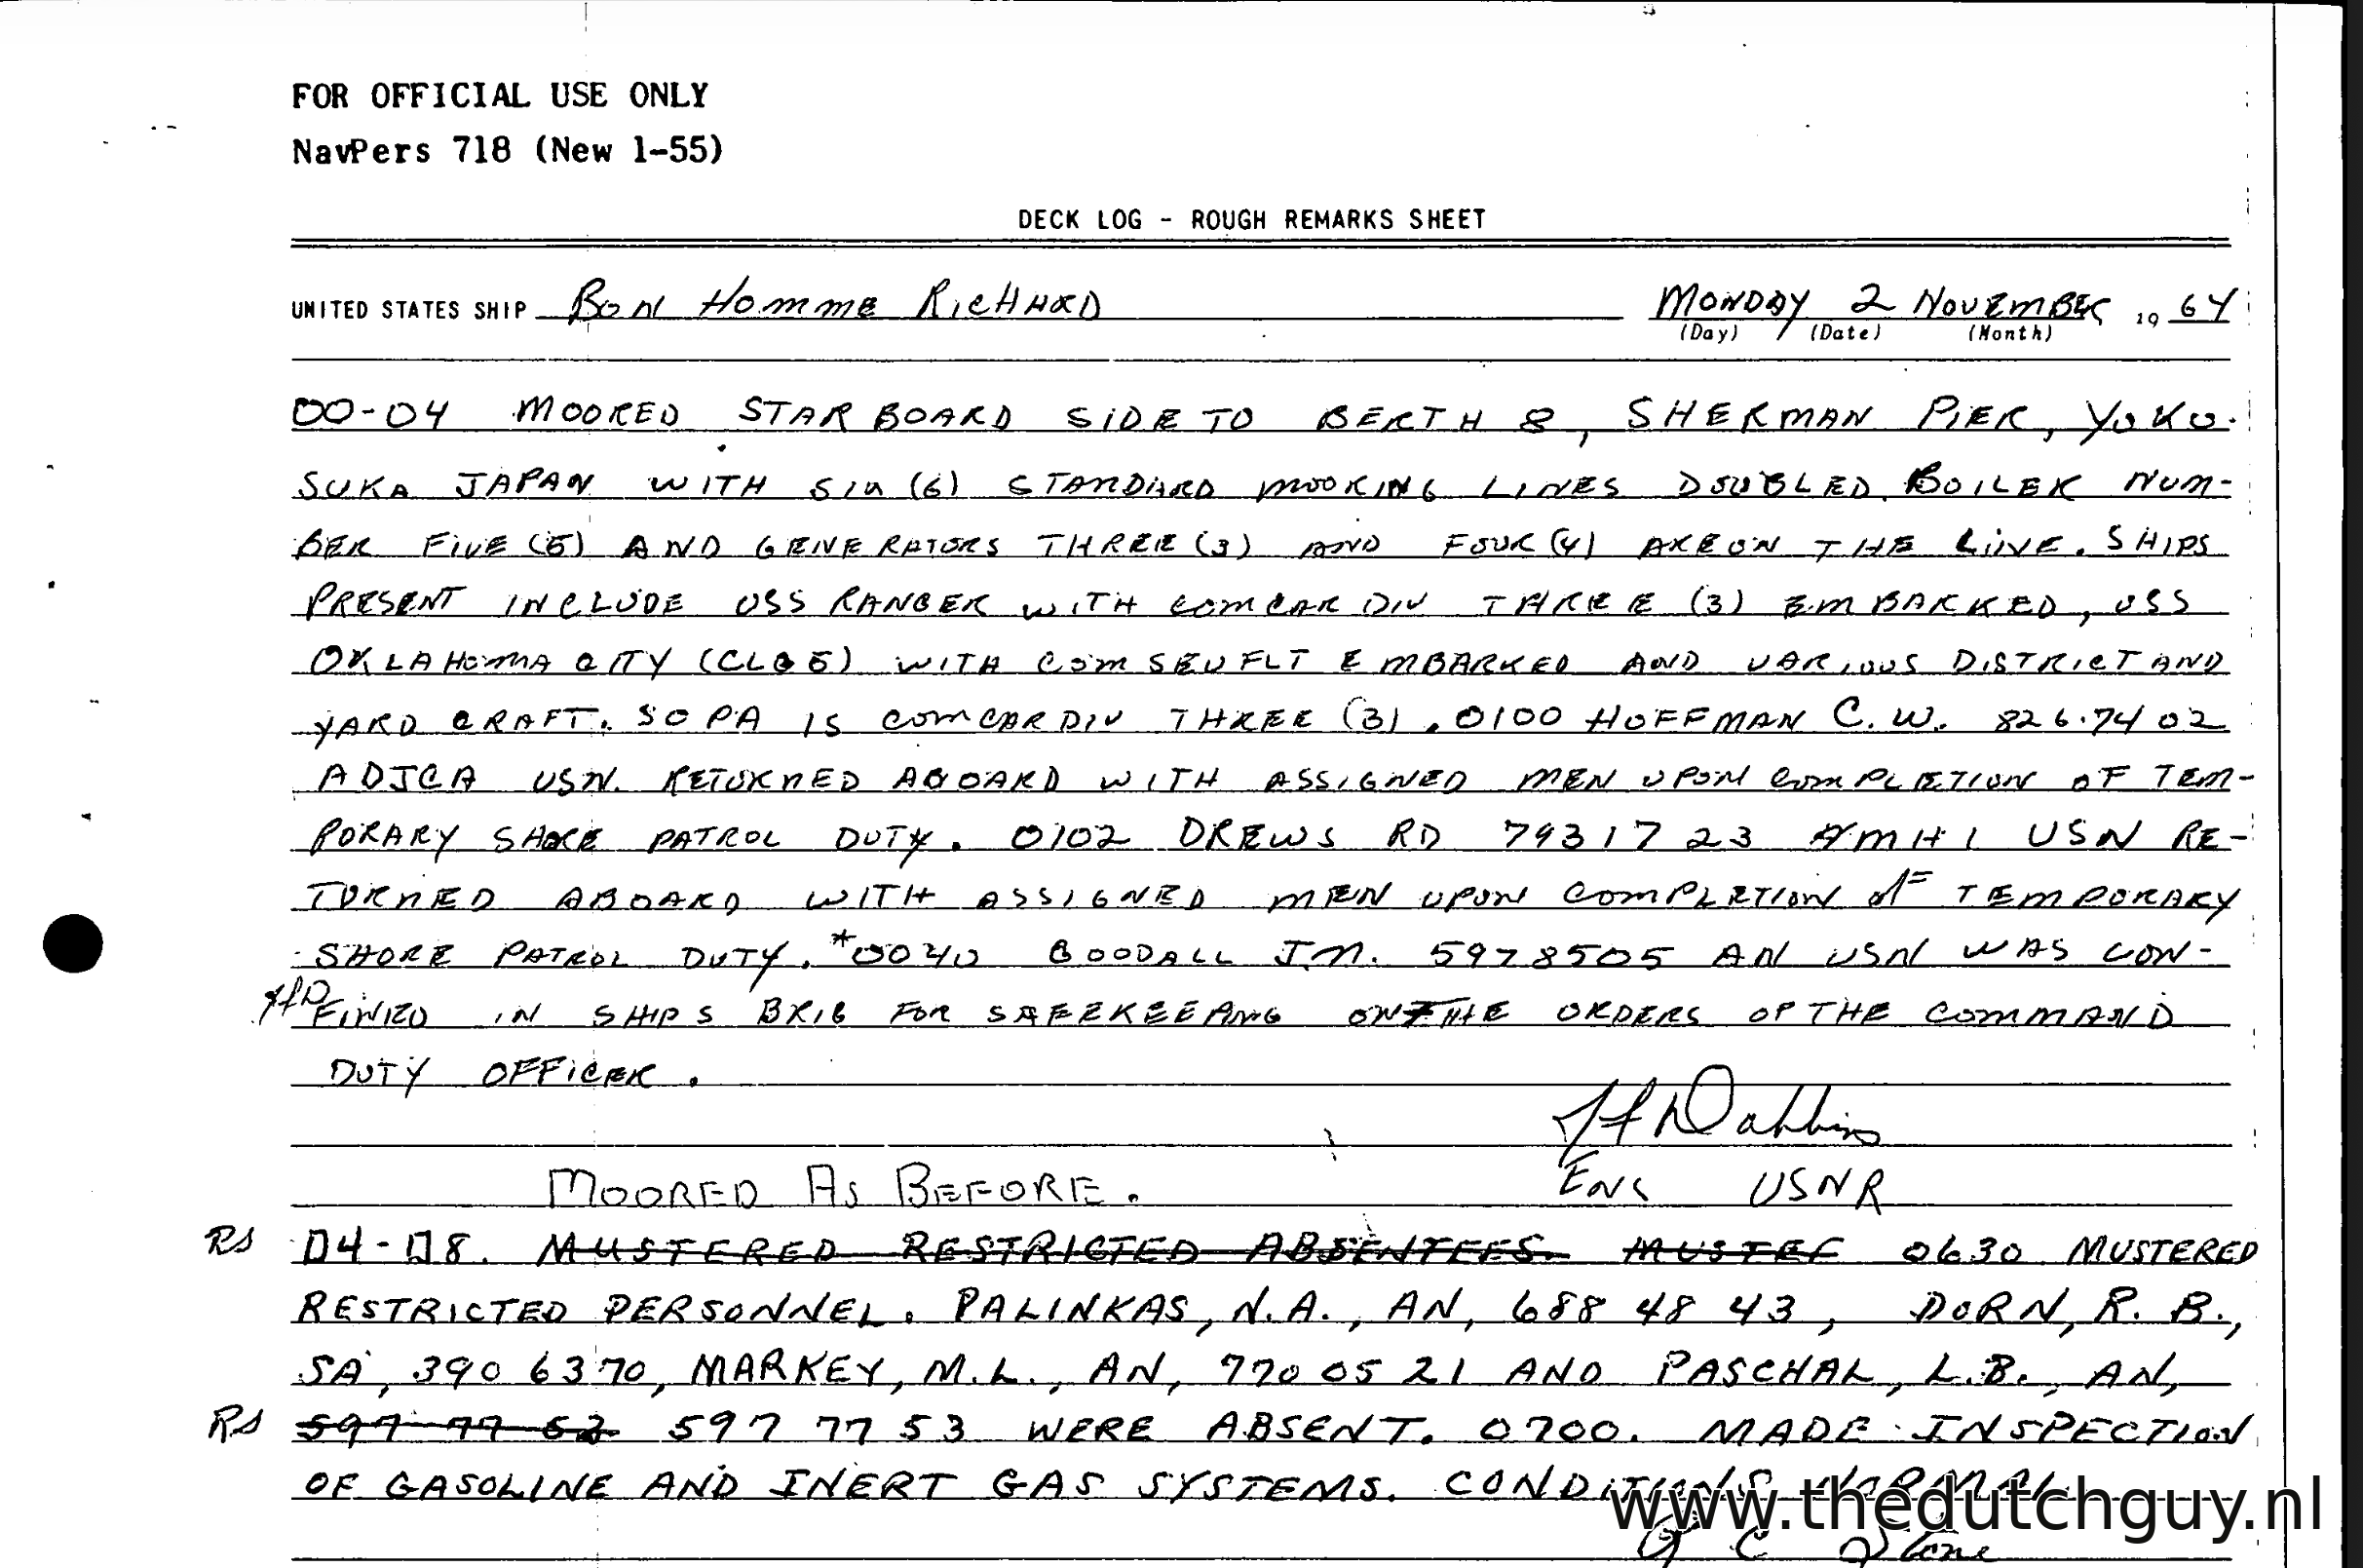 FOR OFFICIAL USE ONLY
NavPers 718 (New 1-55)
DECK LOG - ROUGH REMARKS SHEET
UNITED STATES SHIP BON HOMME RICHARD MONDAY 2 NOVEMBER 19 64
(Day) (Date) (Month)
00-04 MOORED STARBOARD SIDE TO BERTH 8, SHERMAN PIER, YOKO-
SUKA JAPAN WITH SIX (6) STANDARD MOORING LINES DOUBLED. BOILER NUM-
BER FIVE (5) AND GENERATORS THREE (3) AND FOUR (4) ARE ON THE LINE. SHIPS
PRESENT INCLUDE USS RANGER WITH COMCARDIV THREE (3) EMBARKED, USS
OKLAHOMA CITY (CLG5) WITH COMSEVFLT EMBARKED AND VARIOUS DISTRICT AND
YARD CRAFT. SOPA IS COMCARDIV THREE (3). 0100 HOFFMAN C. W. 826 74 02
ADJCA USN. RETURNED ABOARD WITH ASSIGNED MEN UPON COMPLETION OF TEM-
PORARY SHORE PATROL DUTY. 0102 DREWS RD 793 17 23 AMH1 USN RE-
TURNED ABOARD WITH ASSIGNED MEN UPON COMPLETION OF TEMPORARY
SHORE PATROL DUTY. *0040 GOODALL J.M. 597 85 05 AN USN WAS CON-
FINED IN SHIPS BRIG FOR SAFEKEEPING ON THE ORDERS OF THE COMMAND
DUTY OFFICER.
MOORED AS BEFORE. ENS USNR
RS 04-08. MUSTERED RESTRICTED ABSENTEES. MUSTER 0630 MUSTERED
RESTRICTED PERSONNEL. PALINKAS, N.A., AN, 688 48 43, DORN, R. B.,
SA, 390 63 70, MARKEY, M.L., AN, 770 05 21 AND PASCHAL, L.B., AN,
RS 597 77 53 WERE ABSENT. 0700. MADE INSPECTION
OF GASOLINE AND INERT GAS SYSTEMS. CONDITIONS NORMAL.
www.thedutchguy.nl